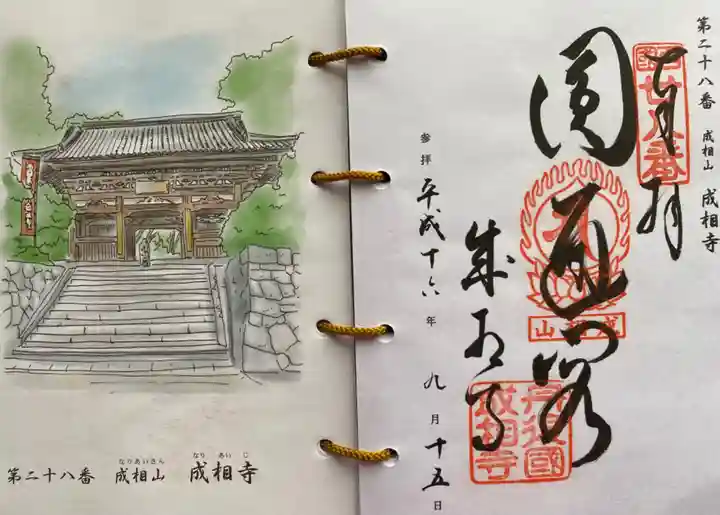 第二十八番 成相山 成相寺
なりあいさん なりあいじ
第二十八番 成相山 成相寺
奉拝
西國
廿八番
圓通閣
成相山
成相寺
丹後國
成相寺
参拝 平成十六年 九月十五日